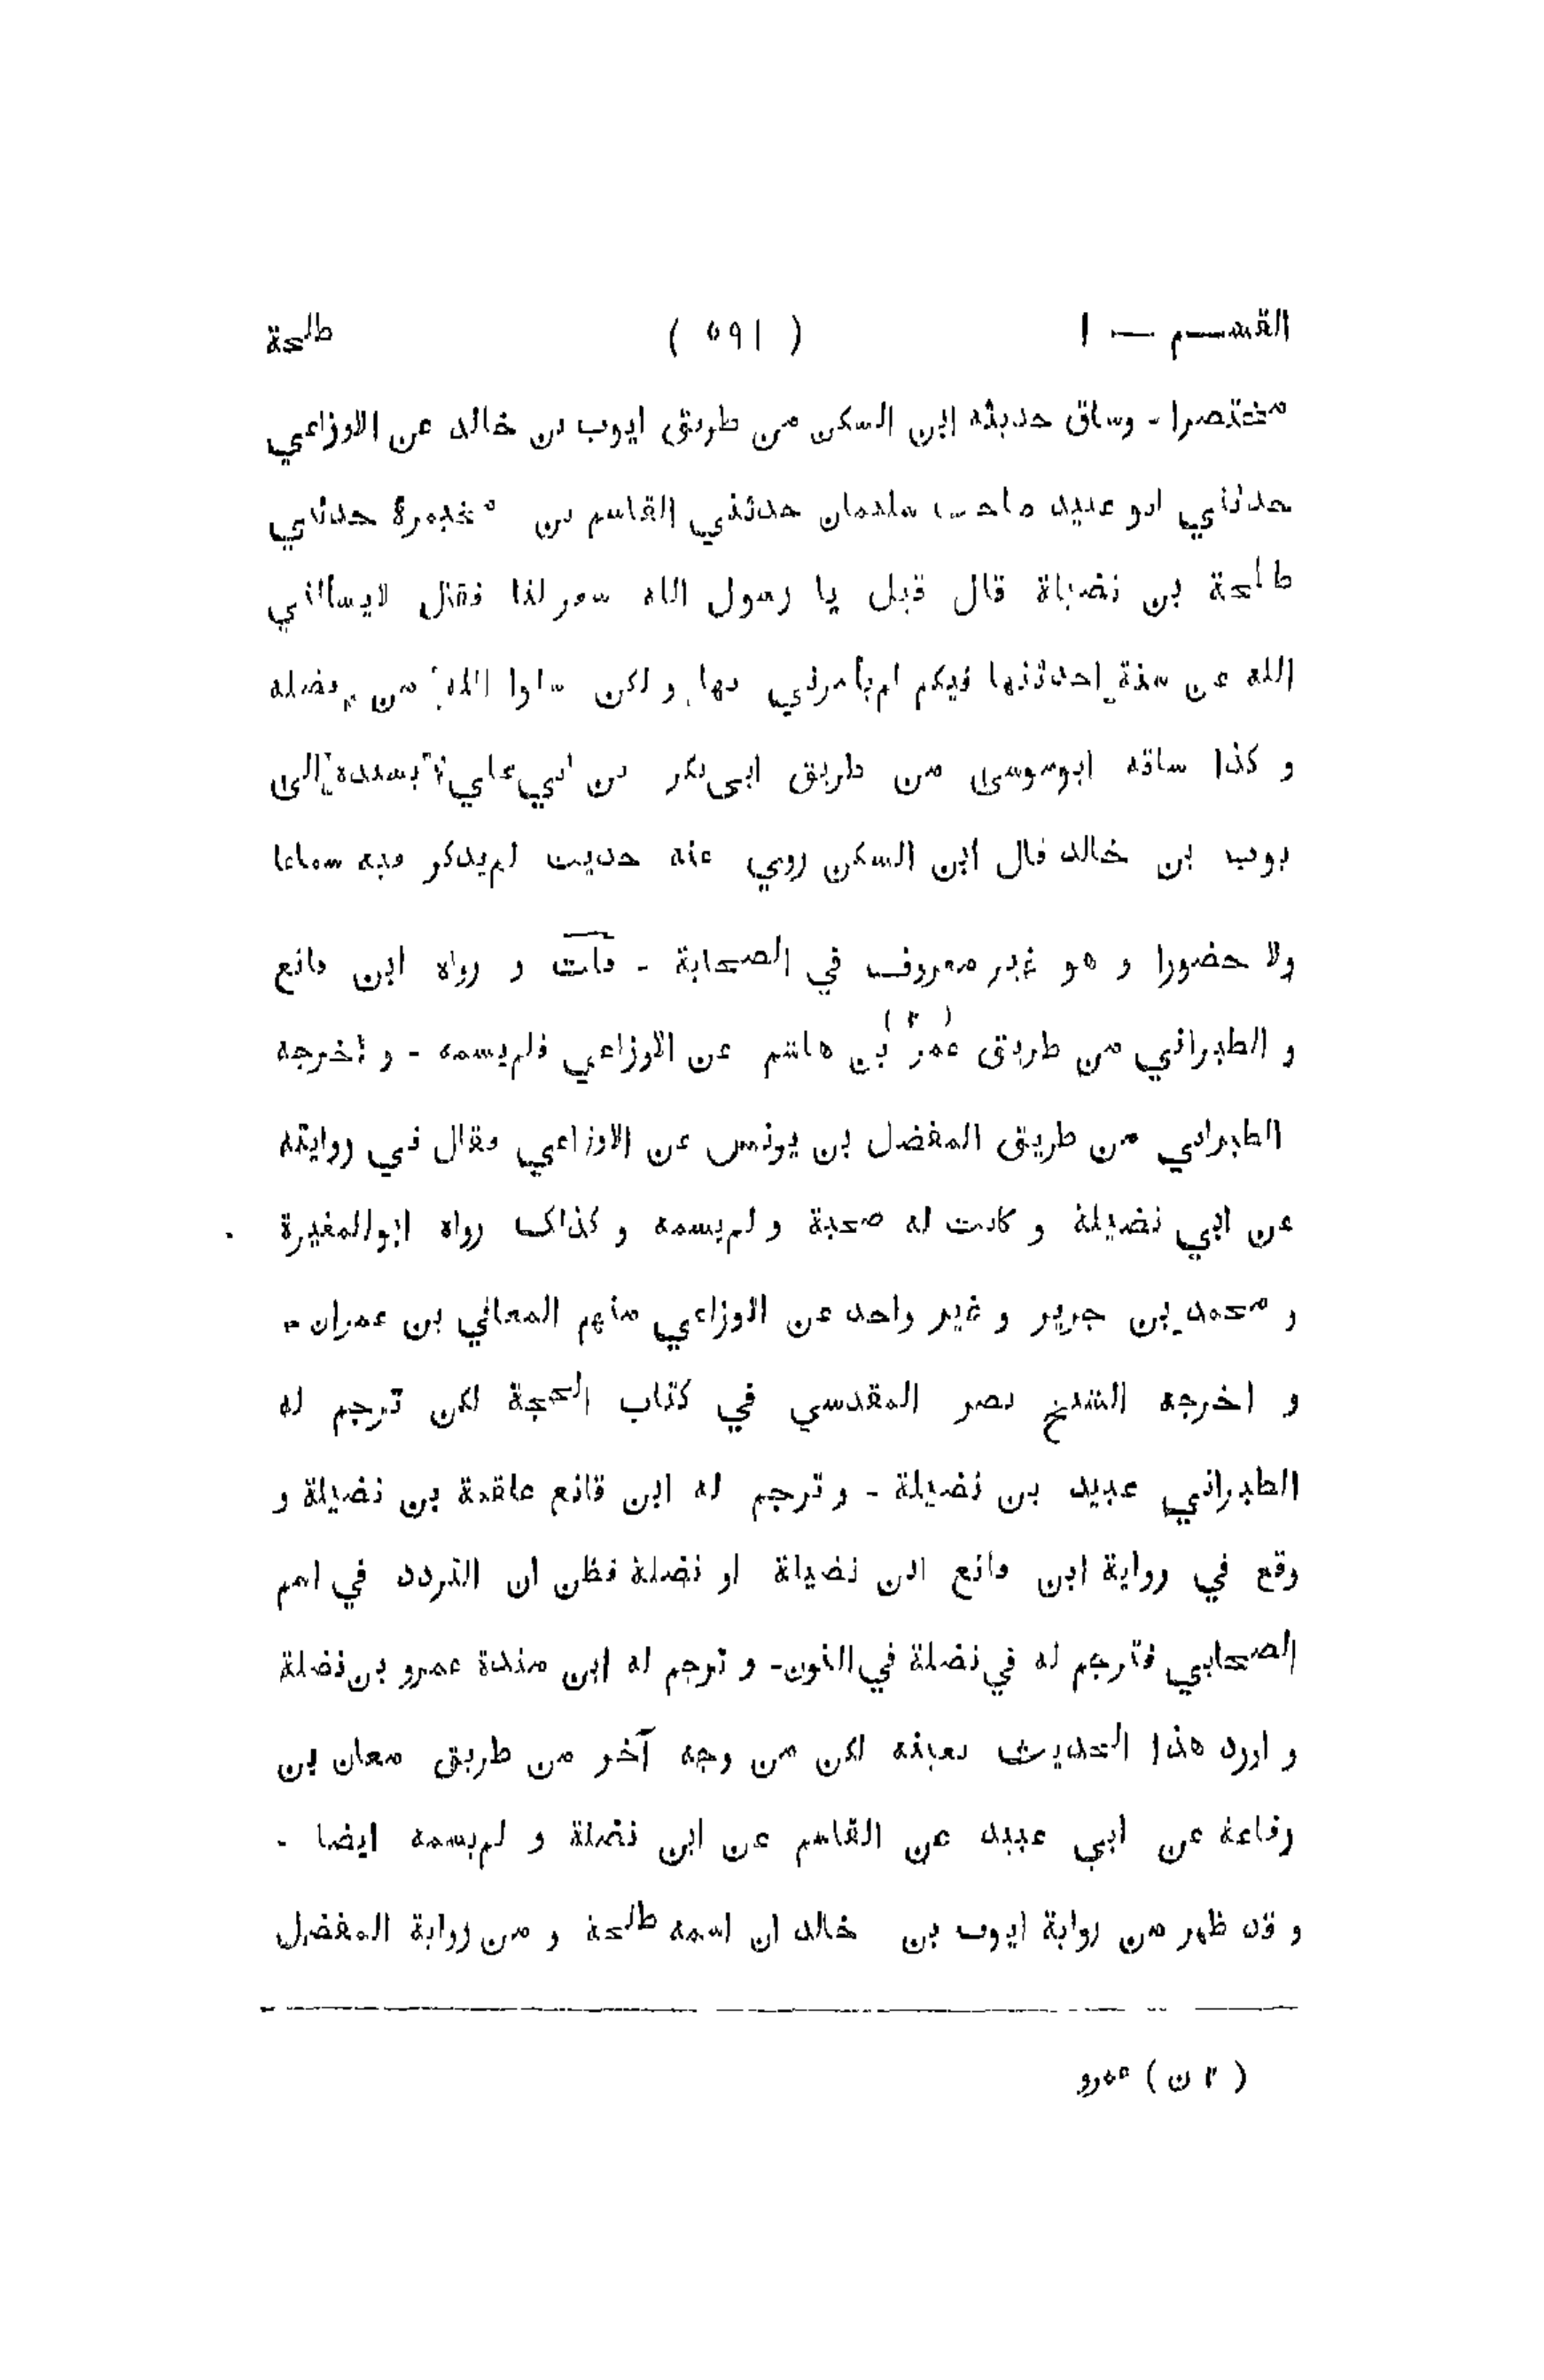 القسم — ١ ( ٥٩١ ) طلحة
مختصرا - وساق حديثه ابن السكن من طريق ايوب بن خالد عن الاوزاعي
حدثني ابو عبيد صاحب سليمان حدثني القاسم بن مخيمرة حدثني
طلحة بن نضيلة قال قيل يا رسول الله سعر لنا فقال لايسألني
الله عن سنة احدثتها فيكم لم يأمرني بها و لكن سلوا الله من فضله
و كذا ساقه ابوموسى من طريق ابي بكر بن ابي علي بسنده الى
يوب بن خالد قال ابن السكن روي عنه حديث لم يذكر فيه سماعا
ولا حضورا و هو غير معروف في الصحابة - قلت و رواه ابن قانع
و الطبراني من طريق عمر (٢) بن هاشم عن الاوزاعي فلم يسمه - و أخرجه
الطبراني من طريق المفضل بن يونس عن الاوزاعي فقال في روايته
عن ابي نضيلة و كانت له صحبة و لم يسمه و كذلك رواه ابوالمغيرة
و محمد بن جرير و غير واحد عن الاوزاعي منهم المعافي بن عمران -
و اخرجه الشيخ نصر المقدسي في كتاب الحجة لكن ترجم له
الطبراني عبيد بن نضيلة - و ترجم له ابن قانع علقمة بن نضيلة و
وقع في رواية ابن قانع ابن نضيلة او نضلة فظن ان التردد في اسم
الصحابي فترجم له في نضلة في النون - و ترجم له ابن مندة عمرو بن نضلة
و اورد هذا الحديث بعينه لكن من وجه آخر من طريق معان بن
رفاعة عن ابي عبيد عن القاسم عن ابن نضلة و لم يسمه ايضا -
و قد ظهر من رواية ايوب بن خالد ان اسمه طلحة و من رواية المفضل
( ٢ ن ) عمرو